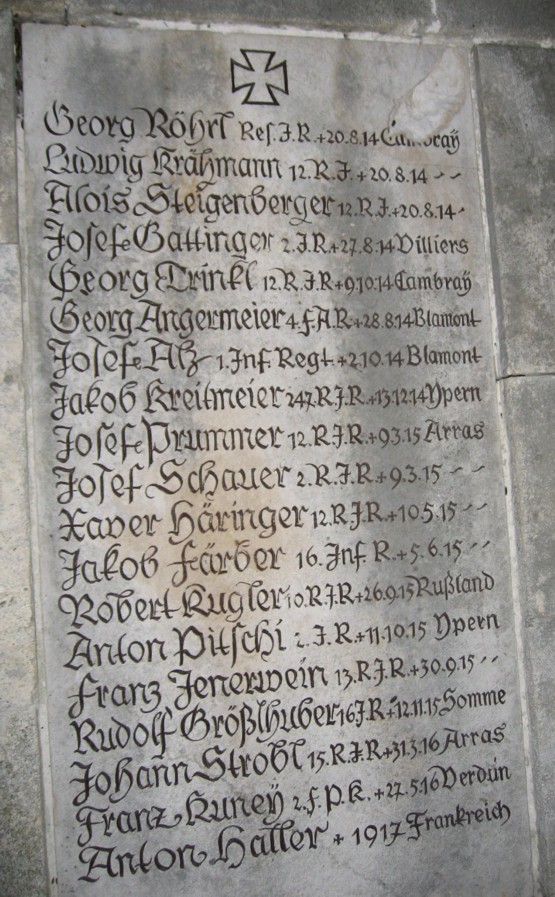 Georg Röhrl Res. J.R. +20.8.14 Cambray
Ludwig Krähmann 12.R.J. +20.8.14 " "
Alois Steigenberger 12.R.J. +20.8.14 "
Josef Gattinger 2.J.R. +27.8.14 Villiers
Georg Trinkl 12.R.J.R. +9.10.14 Cambray
Georg Angermeier 4.f.A.R. +28.8.14 Blamont
Josef Alz 1.Inf. Regt. +2.10.14 Blamont
Jakob Kreitmeier 247.R.J.R. +13.12.14 Ypern
Josef Prummer 12.R.J.R. +9.3.15 Arras
Josef Schauer 2.R.J.R. +9.3.15 " "
Xaver Häringer 12.R.J.R. +10.5.15 " "
Jakob Färber 16.Inf. R. +5.6.15 " "
Robert Kugler 10.R.J.R. +26.9.15 Rußland
Anton Pitschi 2.J.R. +11.10.15 Ypern
Franz Jenerwein 13.R.J.R. +30.9.15 " "
Rudolf Größlhuber 16.J.R. +12.11.15 Somme
Johann Strobl 15.R.J.R. +31.3.16 Arras
Franz Kuney 2.f.P.K. +27.5.16 Verdun
Anton Haller + 1917 Frankreich